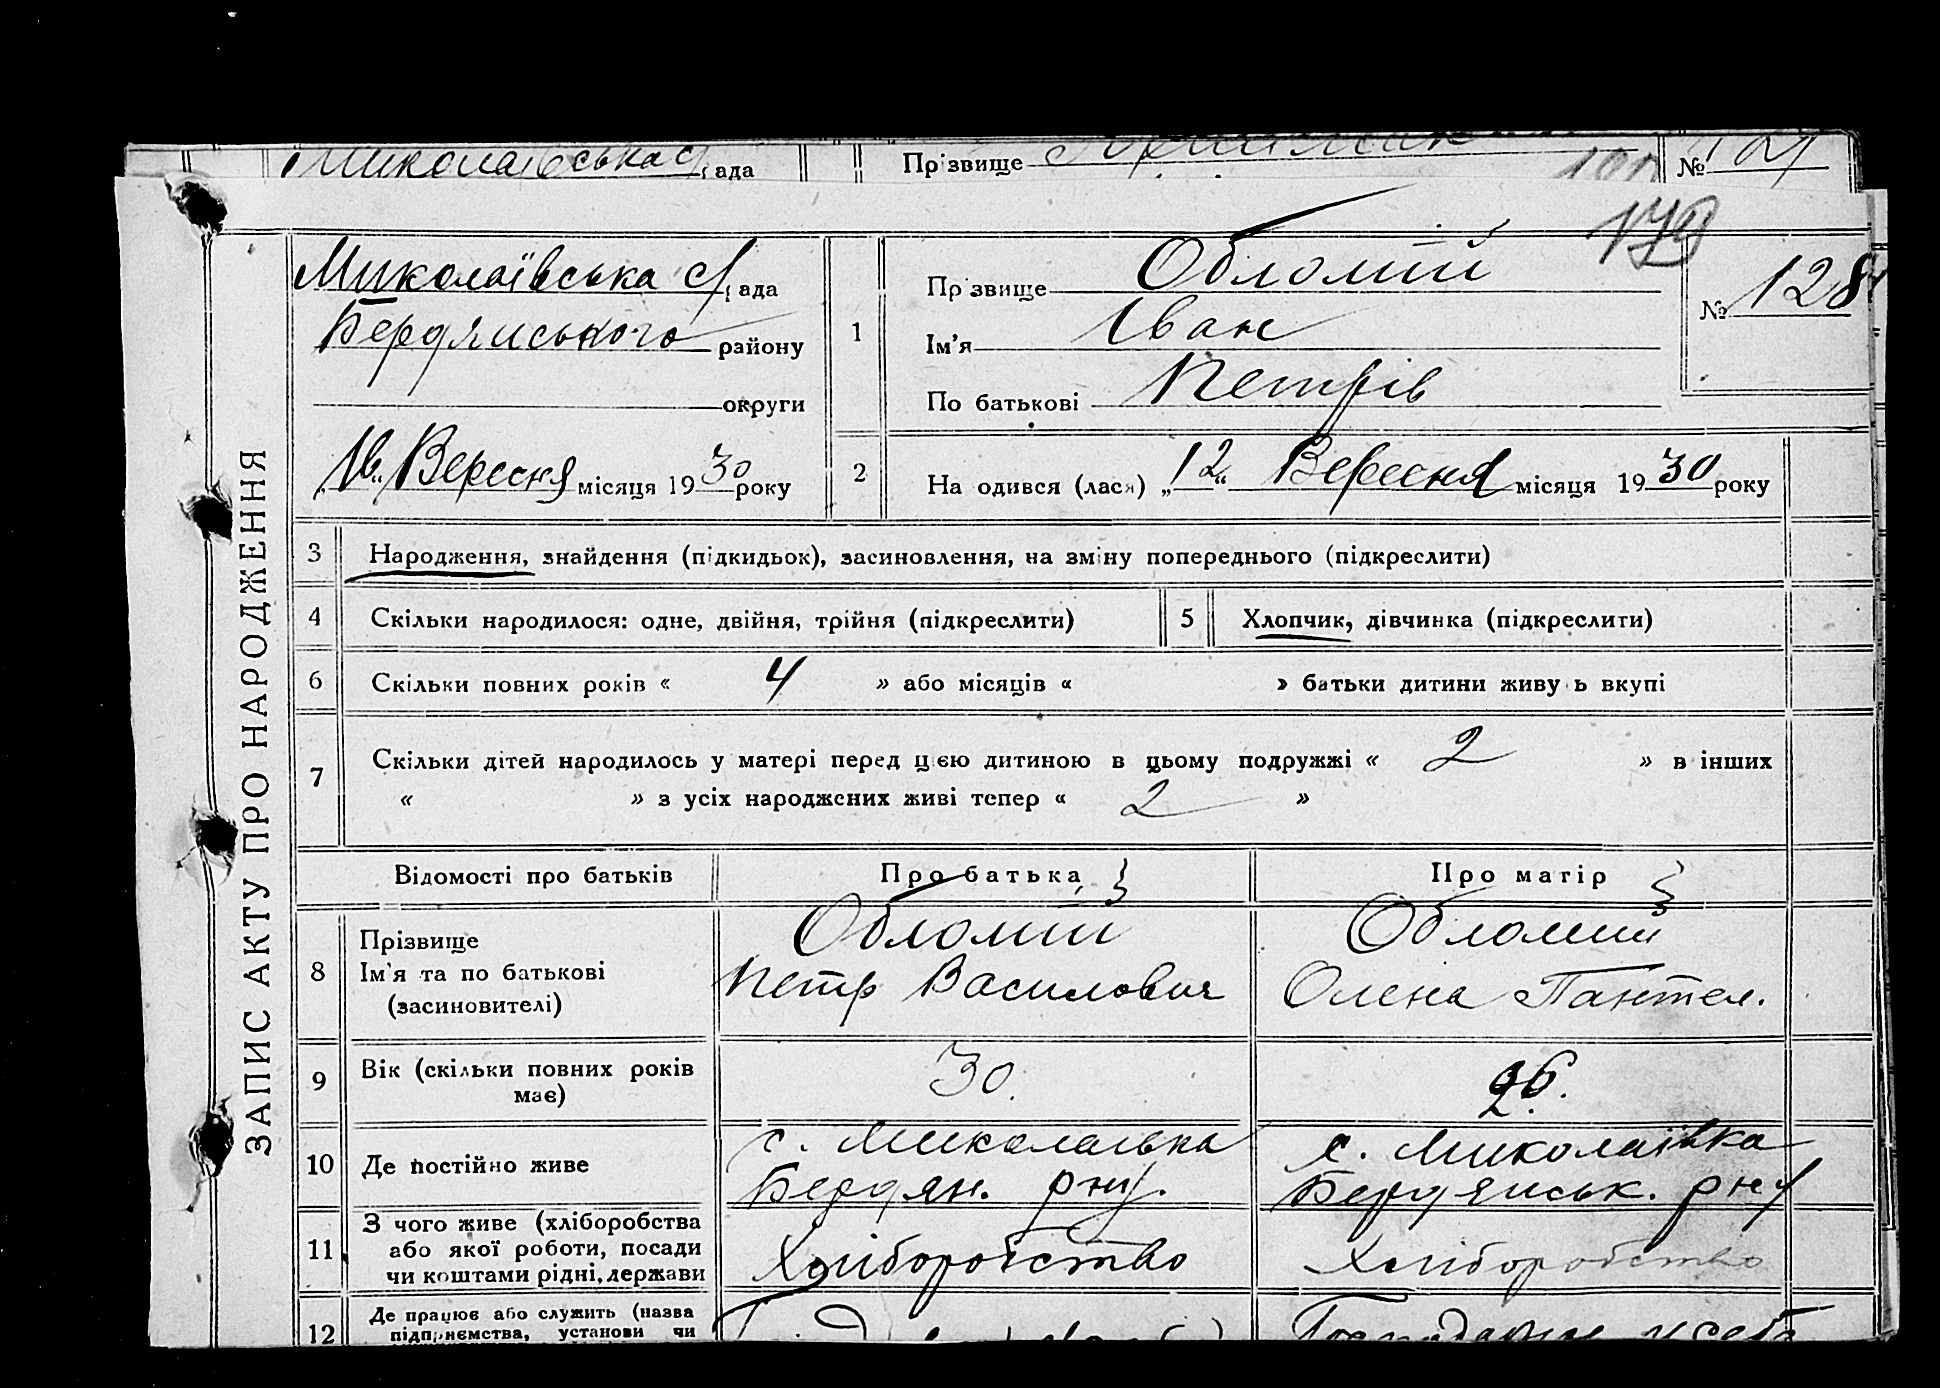 Миколаївська с/рада
Прізвище
№ 127
179
ЗАПИС АКТУ ПРО НАРОДЖЕННЯ
Миколаївська с/рада
Бердянського району
округи
„16“ Вересня місяця 1930 року
1
Прізвище Обломій
Ім'я Іван
По батькові Петрів
№ 128
2
На одився (лася) „12“ Вересня місяця 1930 року
3 Народження, знайдення (підкидьок), засиновлення, на зміну попереднього (підкреслити)
4 Скільки народилося: одне, двійня, трійня (підкреслити)
5 Хлопчик, дівчинка (підкреслити)
6 Скільки повних років « 4 » або місяців « » батьки дитини живу ь вкупі
7 Скільки дітей народилось у матері перед цією дитиною в цьому подружжі « 2 » в інших
« » з усіх народжених живі тепер « 2 »
Відомості про батьків Про батька Про матір
8 Прізвище Обломій Обломій
Ім'я та по батькові Петр Василович Олена Пантел.
(засиновителі)
9 Вік (скільки повних років має) 30. 26.
10 Де постійно живе с. Миколаївка с. Миколаївка
Бердян. рну. Бердянськ. рну
11 З чого живе (хліборобства
або якої роботи, посади Хліборобство Хліборобство
чи коштами рідні, держави
12 Де працює або служить (назва
підприємства, установи чи Господарює у себе